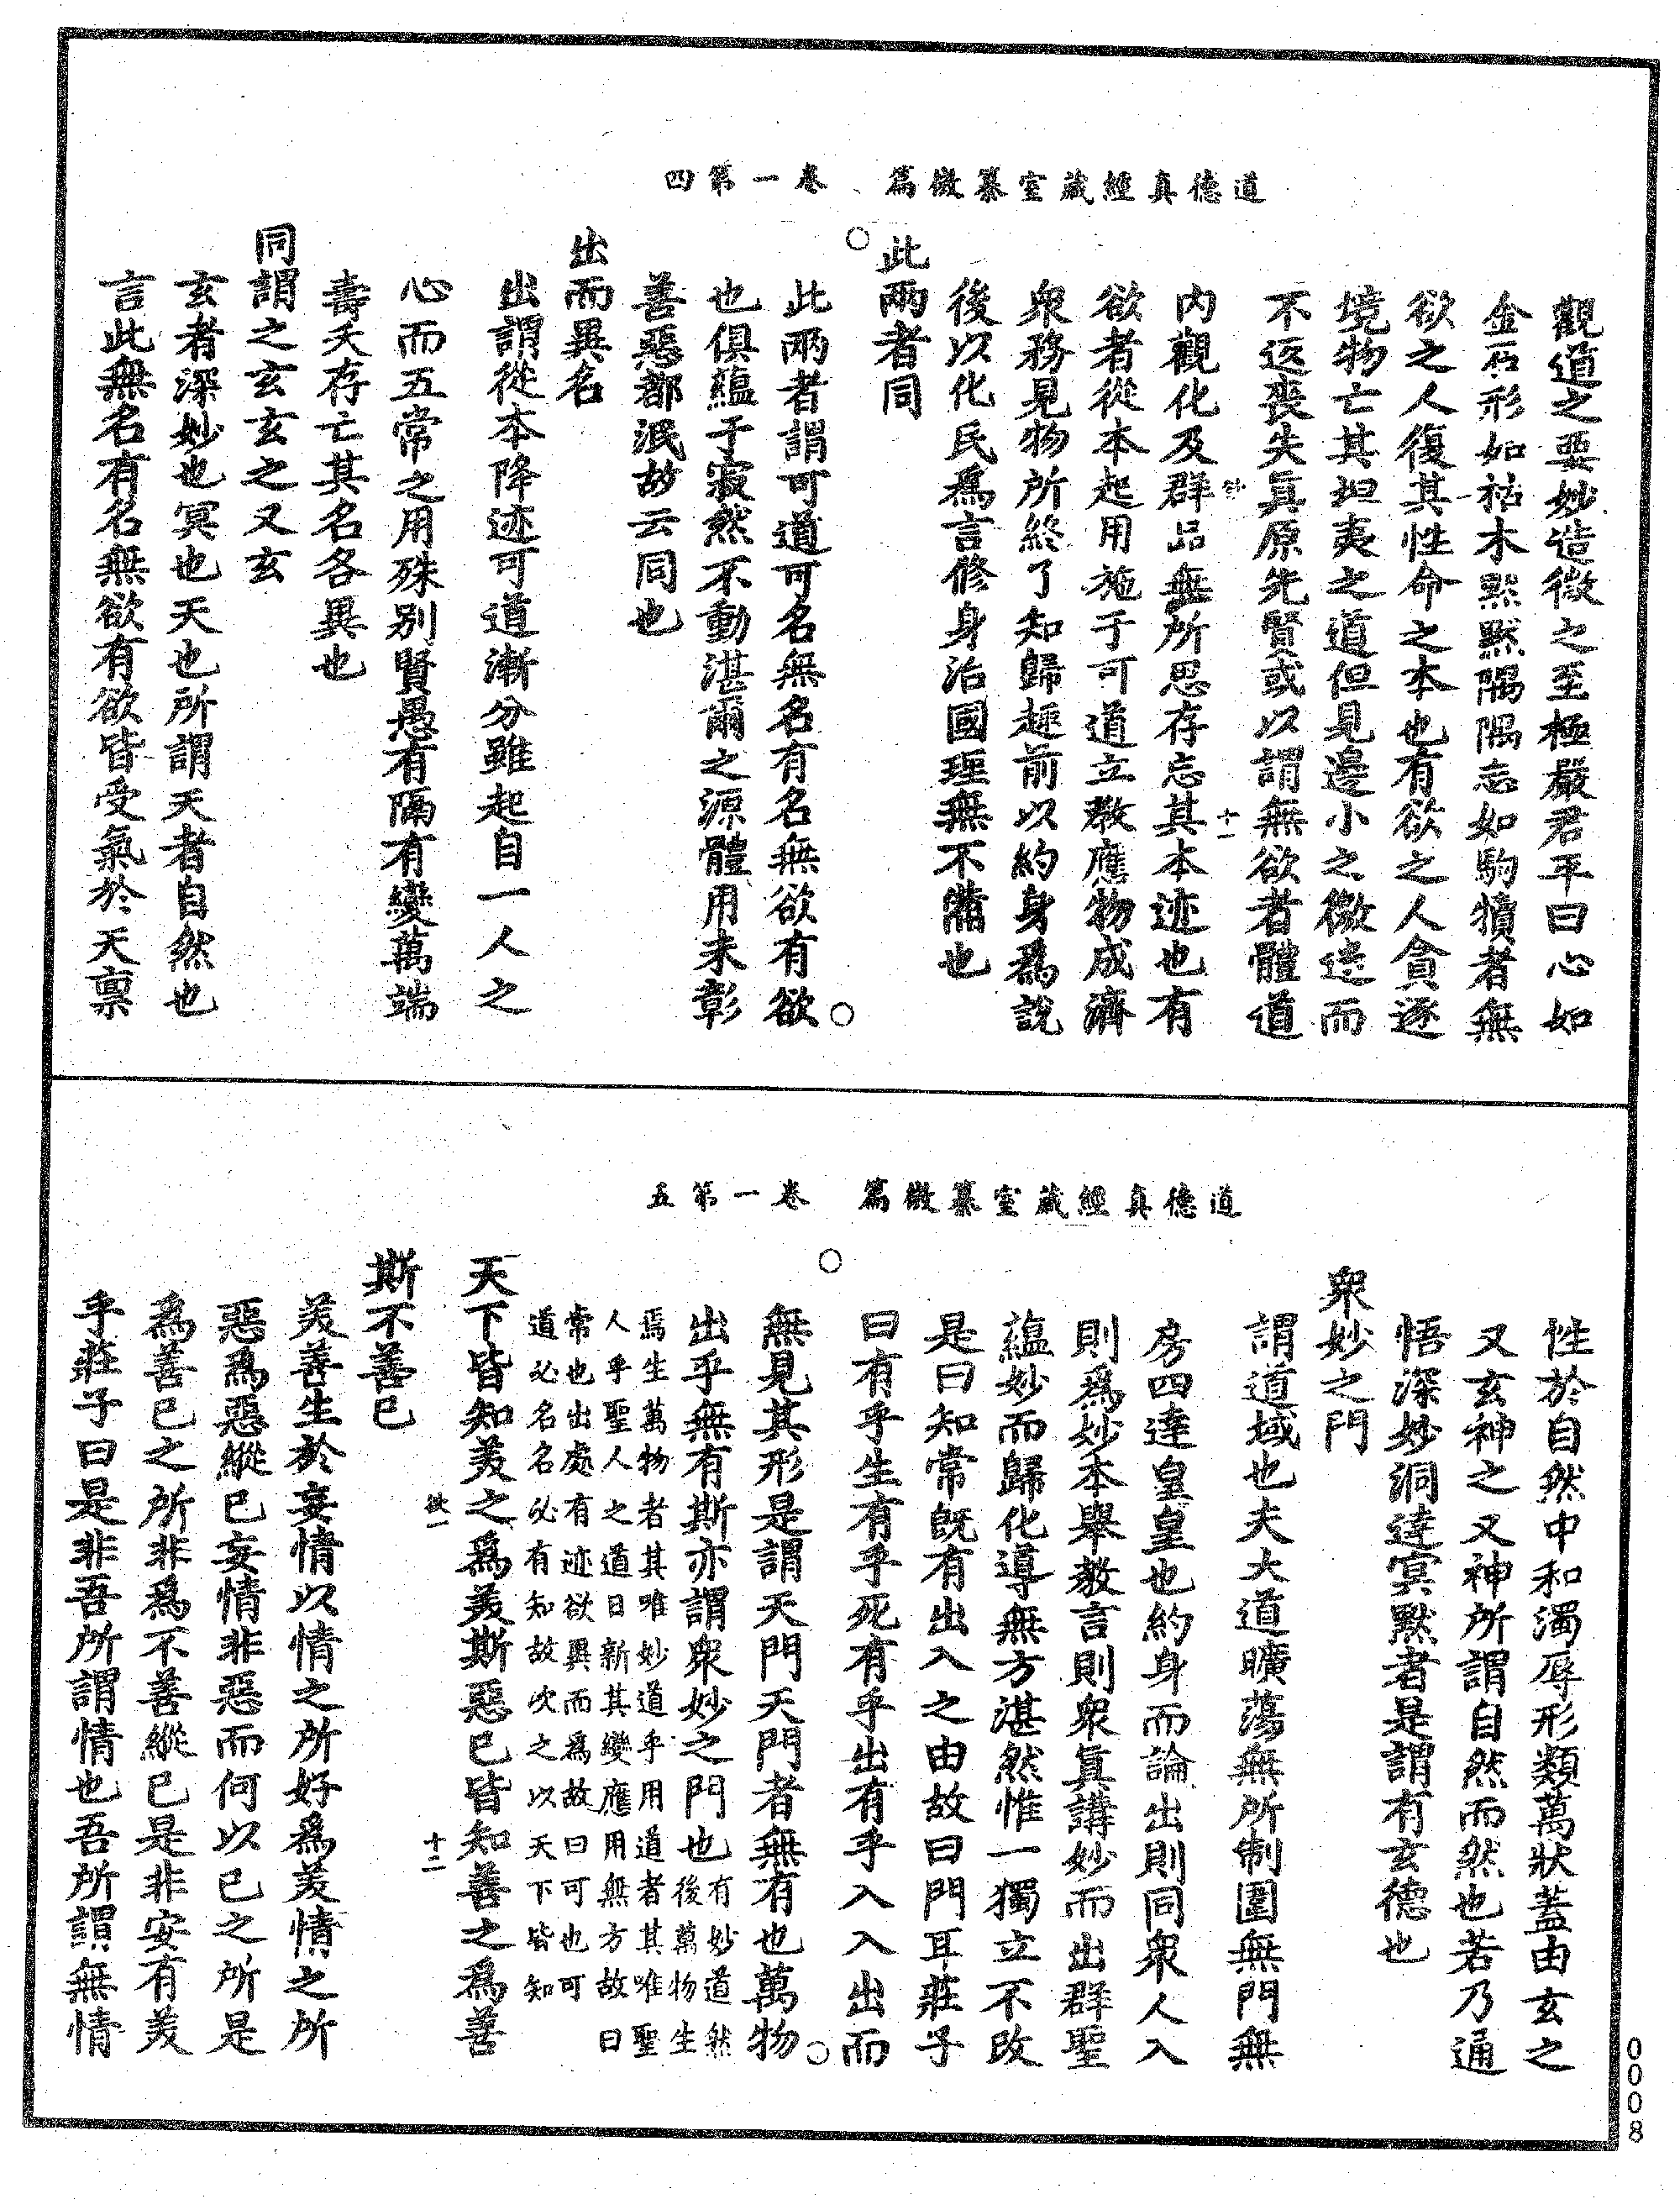 道德真經藏室纂微篇　卷一第四
觀道之要妙造徼之至極嚴君平曰心如
金石形如枯木默默隅隅志如駒犢者無
欲之人復其性命之本也有欲之人貪逐
境物亡其坦夷之道但見邊小之徼迷而
不返喪失眞原先賢或以謂無欲者體道
十一
內觀化及群品無所思存忘其本迹也有
欲者從本起用施于可道立教應物成濟
衆務見物所終了知歸趣前以約身爲說
後以化民爲言修身治國理無不備也
此兩者同
此兩者謂可道可名無名有名無欲有欲
也俱蘊于寂然不動湛爾之源體用未彰
善惡都泯故云同也
出而異名
出謂從本降迹可道漸分雖起自一人之
心而五常之用殊别賢愚有隔有變萬端
壽夭存亡其名各異也
同謂之玄玄之又玄
玄者深妙也冥也天也所謂天者自然也
言此無名有名無欲有欲皆受氣於天禀
道德真經藏室纂微篇　卷一第五
性於自然中和濁辱形類萬狀蓋由玄之
又玄神之又神所謂自然而然也若乃通
悟深妙洞達冥默者是謂有玄德也
衆妙之門
謂道域也夫大道曠蕩無所制圍無門無
房四達皇皇也約身而論出則同衆人入
則爲妙本舉教言則衆眞講妙而出群聖
蘊妙而歸化導無方湛然惟一獨立不改
是曰知常旣有出入之由故曰門耳莊子
曰有乎生有乎死有乎出有乎入入出而
無見其形是謂天門天門者無有也萬物
出乎無有斯亦謂衆妙之門也有妙道然
後萬物生
焉生萬物者其唯妙道乎用道者其唯聖
人乎聖人之道日新其變應用無方故曰
常也出處有迹欲異而爲故曰可也可
道必名名必有知故次之以天下皆知
天下皆知美之爲美斯惡已皆知善之爲善
十二
斯不善已
美善生於妄情以情之所好爲美情之所
惡爲惡縱已妄情非惡而何以已之所是
爲善已之所非爲不善縱已是非安有美
乎莊子曰是非吾所謂情也吾所謂無情
0008